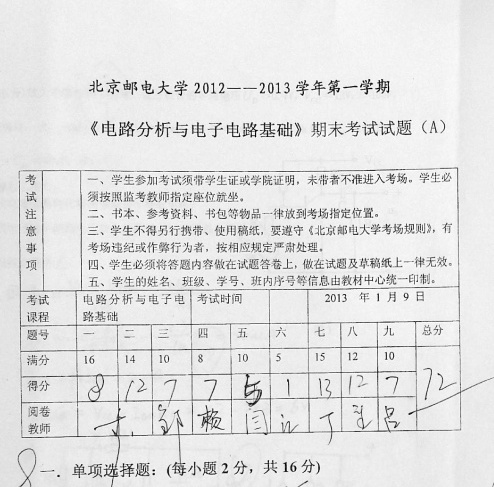 北京邮电大学2012——2013学年第一学期
《电路分析与电子电路基础》期末考试试题（A）
考试注意事项
一、学生参加考试须带学生证或学院证明，未带者不准进入考场。学生必
须按照监考教师指定座位就坐。
二、书本、参考资料、书包等物品一律放到考场指定位置。
三、学生不得另行携带、使用稿纸，要遵守《北京邮电大学考场规则》，有
考场违纪或作弊行为者，按相应规定严肃处理。
四、学生必须将答题内容做在试题答卷上，做在试题及草稿纸上一律无效。
五、学生的姓名、班级、学号、班内序号等信息由教材中心统一印制。
考试课程 电路分析与电子电路基础 考试时间 2013 年 1 月 9 日
题号 一 二 三 四 五 六 七 八 九 总分
满分 16 14 10 8 10 5 15 12 10
得分 8 12 7 7 5 1 13 12 7 72
阅卷教师
8
一．单项选择题：(每小题2分，共16分)